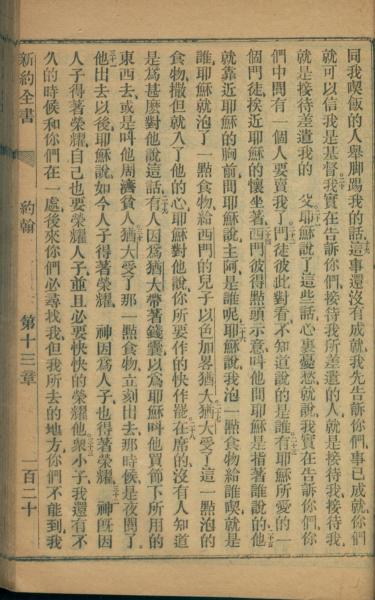 同我喫飯的人舉脚踢我的話這事還沒有成就我先告訴你們事已成就你們
就可以信我是基督我實在告訴你們接待我所差遣的人就是接待我接待我
就是接待差遣我的 父耶穌說了這些話心裏憂愁就說我實在告訴你們你
們中間有一個人要賣我了門徒彼此對看不知道說的是誰有耶穌所愛的一
個門徒挨近耶穌的懷坐著西門彼得點頭示意叫他問耶穌是指著誰說的他
就靠近耶穌的胸前問耶穌說主阿是誰呢耶穌說我泡一點食物給誰喫就是
誰耶穌就泡了一點食物給西門的兒子以色加畧猶大猶大受了這一點泡的
食物撒但就入了他的心耶穌對他說你所要作的快作罷在席的沒有人知道
是爲甚麽對他說這話有人因爲猶大帶著錢囊以爲耶穌叫他買節下所用的
東西去或是叫他周濟貧人猶大受了那一點食物立刻出去那時候是夜間了
他出去以後耶穌說如今人子得著榮耀 神因爲人子也得著榮耀 神旣因
人子得著榮耀自己也要榮耀人子並且必要快快的榮耀他衆小子我還有不
久的時候和你們在一處後來你們必尋找我但我所去的地方你們不能到我
新約全書 約翰 第十三章 一百二十